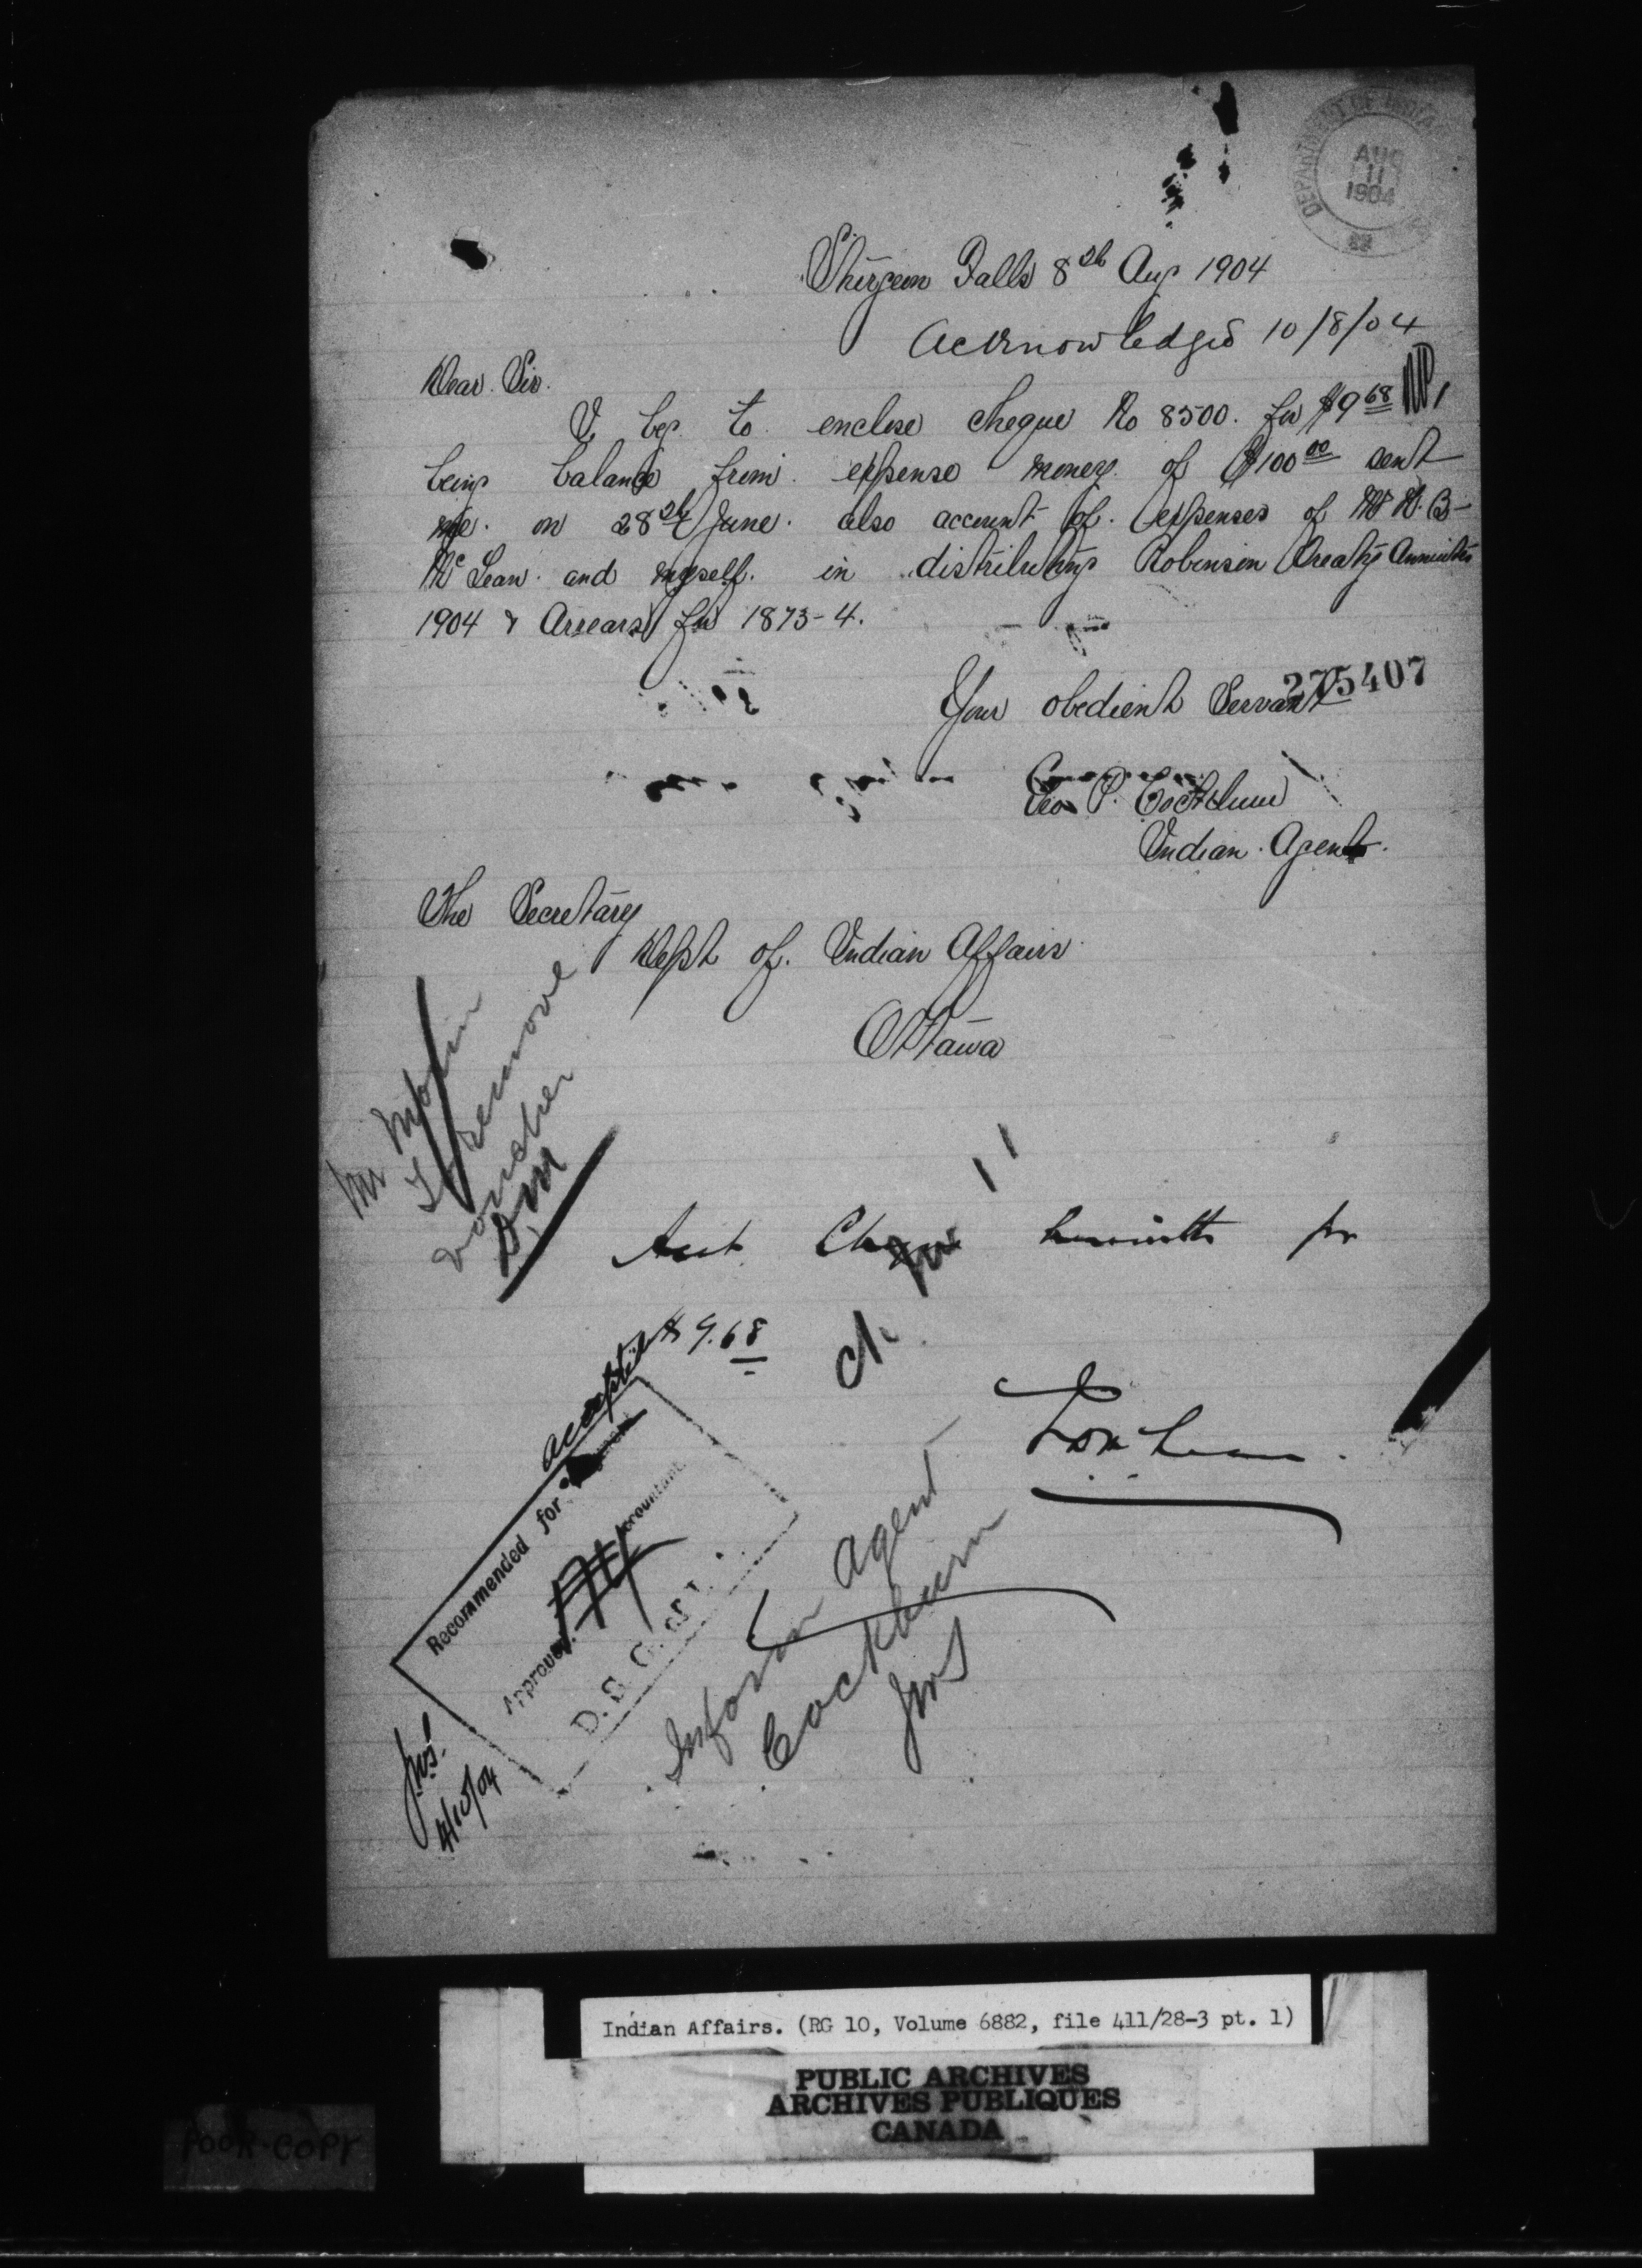 DEPARTMENT OF INDIAN
AUG
11
1904
Sturgeon Falls 8th Aug 1904
Acknowledged 10/8/04
Dear Sir.
I beg to enclose cheque No 8500. for $9 68
being balance from expense money of $100 00 sent
me. on 28th June. also account of. expenses of Mr W. B-
McLean. and myself. in distributing Robinson Treaty Annuities
1904 & Arrears for 1873-4.
Your obedient Servant
275407
Geo P. Cockburn
Indian Agent.
The Secretary
Dept of. Indian Affairs
Ottawa
Mr Morin
To remove
voucher
Acct. herewith for
$9.68
accepted
Recommended for
Accountant.
Approved.
D. S. G. of I.
Inform Agent
Cockburn
JWS
JWS.
4/10/04
Indian Affairs. (RG 10, Volume 6882, file 411/28-3 pt. 1)
PUBLIC ARCHIVES
ARCHIVES PUBLIQUES
CANADA
POOR COPY